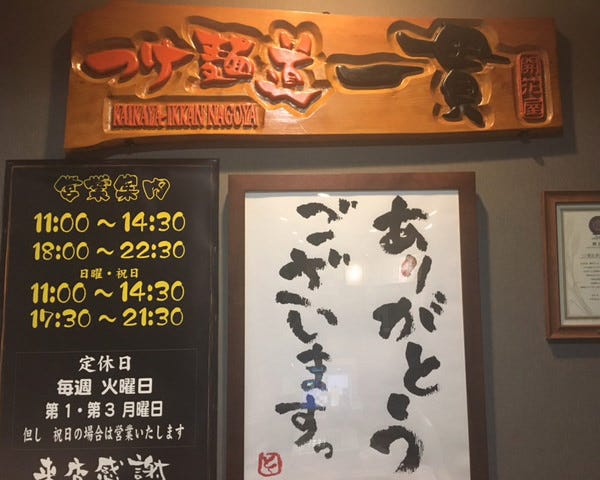 つけ麺道一貫
KAIKAYA-IKKAN NAGOYA
営業案内
11:00 ～ 14:30
18:00 ～ 22:30
日曜・祝日
11:00 ～ 14:30
17:30 ～ 21:30
定休日
毎週 火曜日
第1・第3 月曜日
但し 祝日の場合は営業いたします
来店感謝
ありがとう
ございますっ